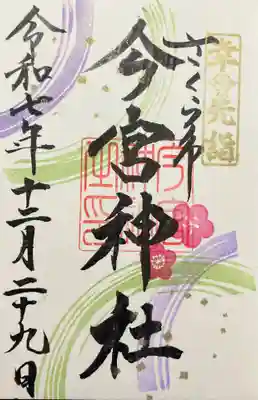 幸先詣
さくら市
今宮神社
令和七年十二月二十九日